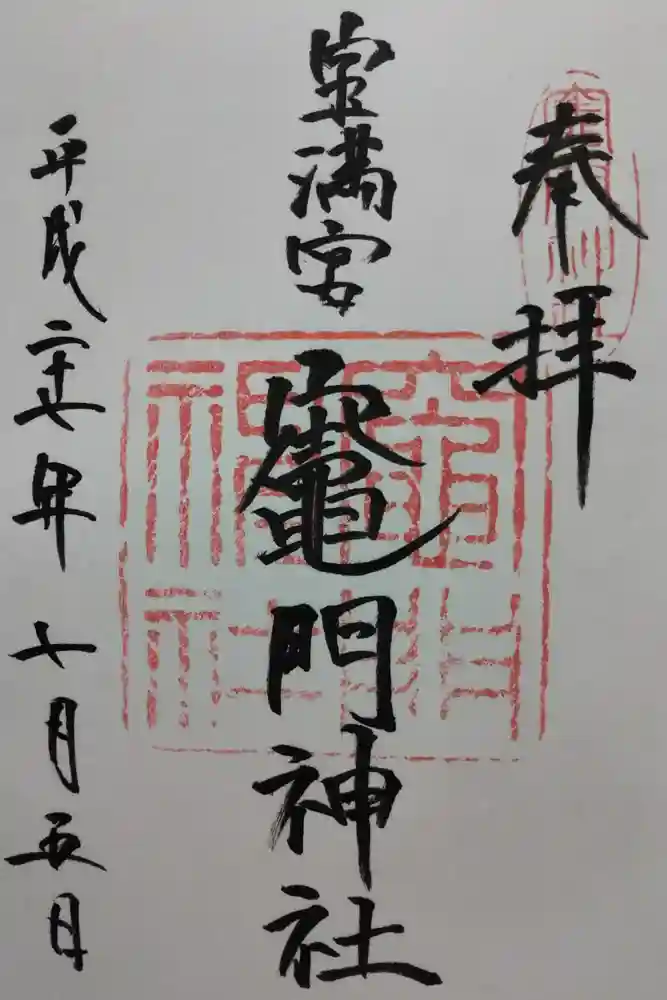 奉拝
宝満宮 竈門神社
平成二十七年 七月五日